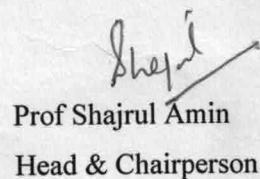 Shajrul
Prof Shajrul Amin
Head & Chairperson